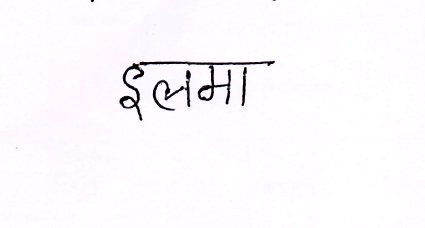 इलमा